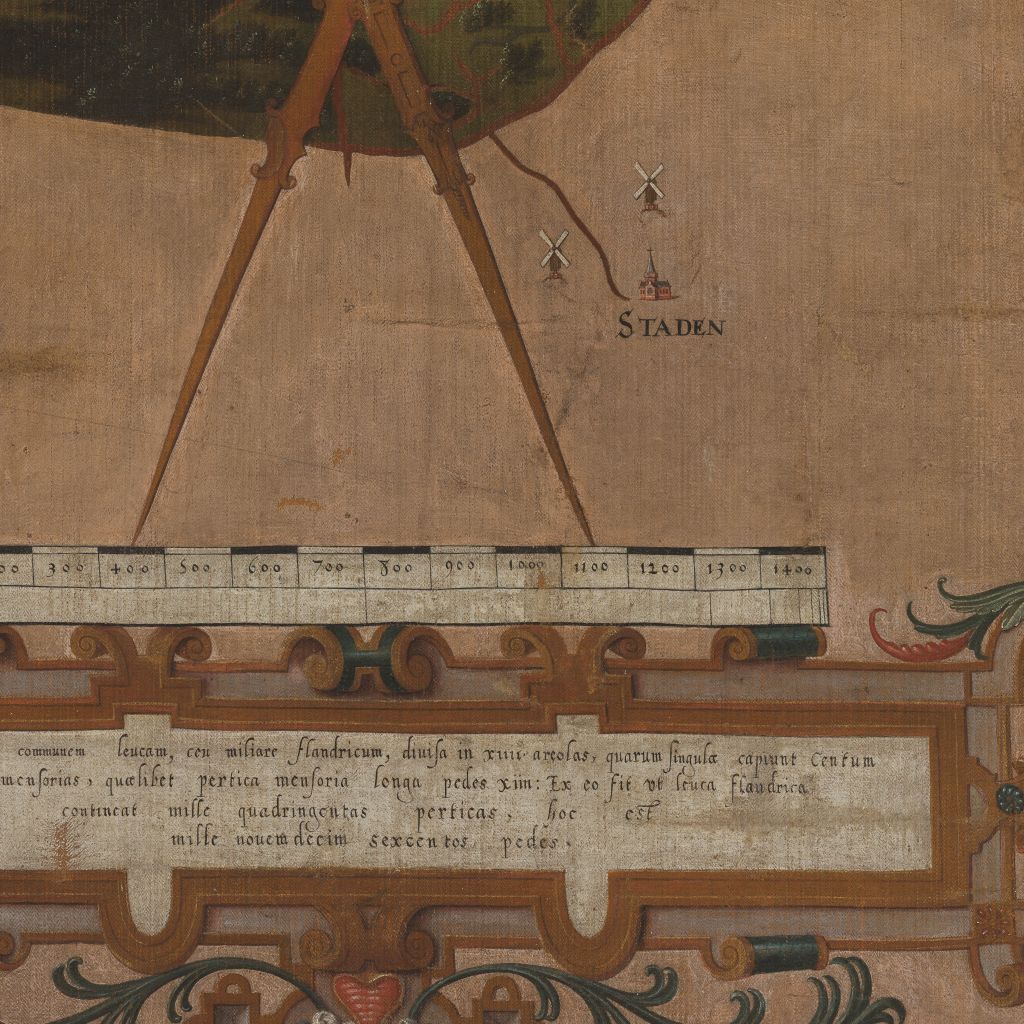 CL
STADEN
00 300 400 500 600 700 800 900 1000 1100 1200 1300 1400
communem leucam, ceu miliare flandricum, diuisa in xiiii areolas, quarum singulæ capiunt Centum
mensorias, quælibet pertica mensoria longa pedes xiiii: Ex eo fit vt leuca flandrica
contineat mille quadringentas perticas, hoc est
mille nouemdecim sexcentos pedes.